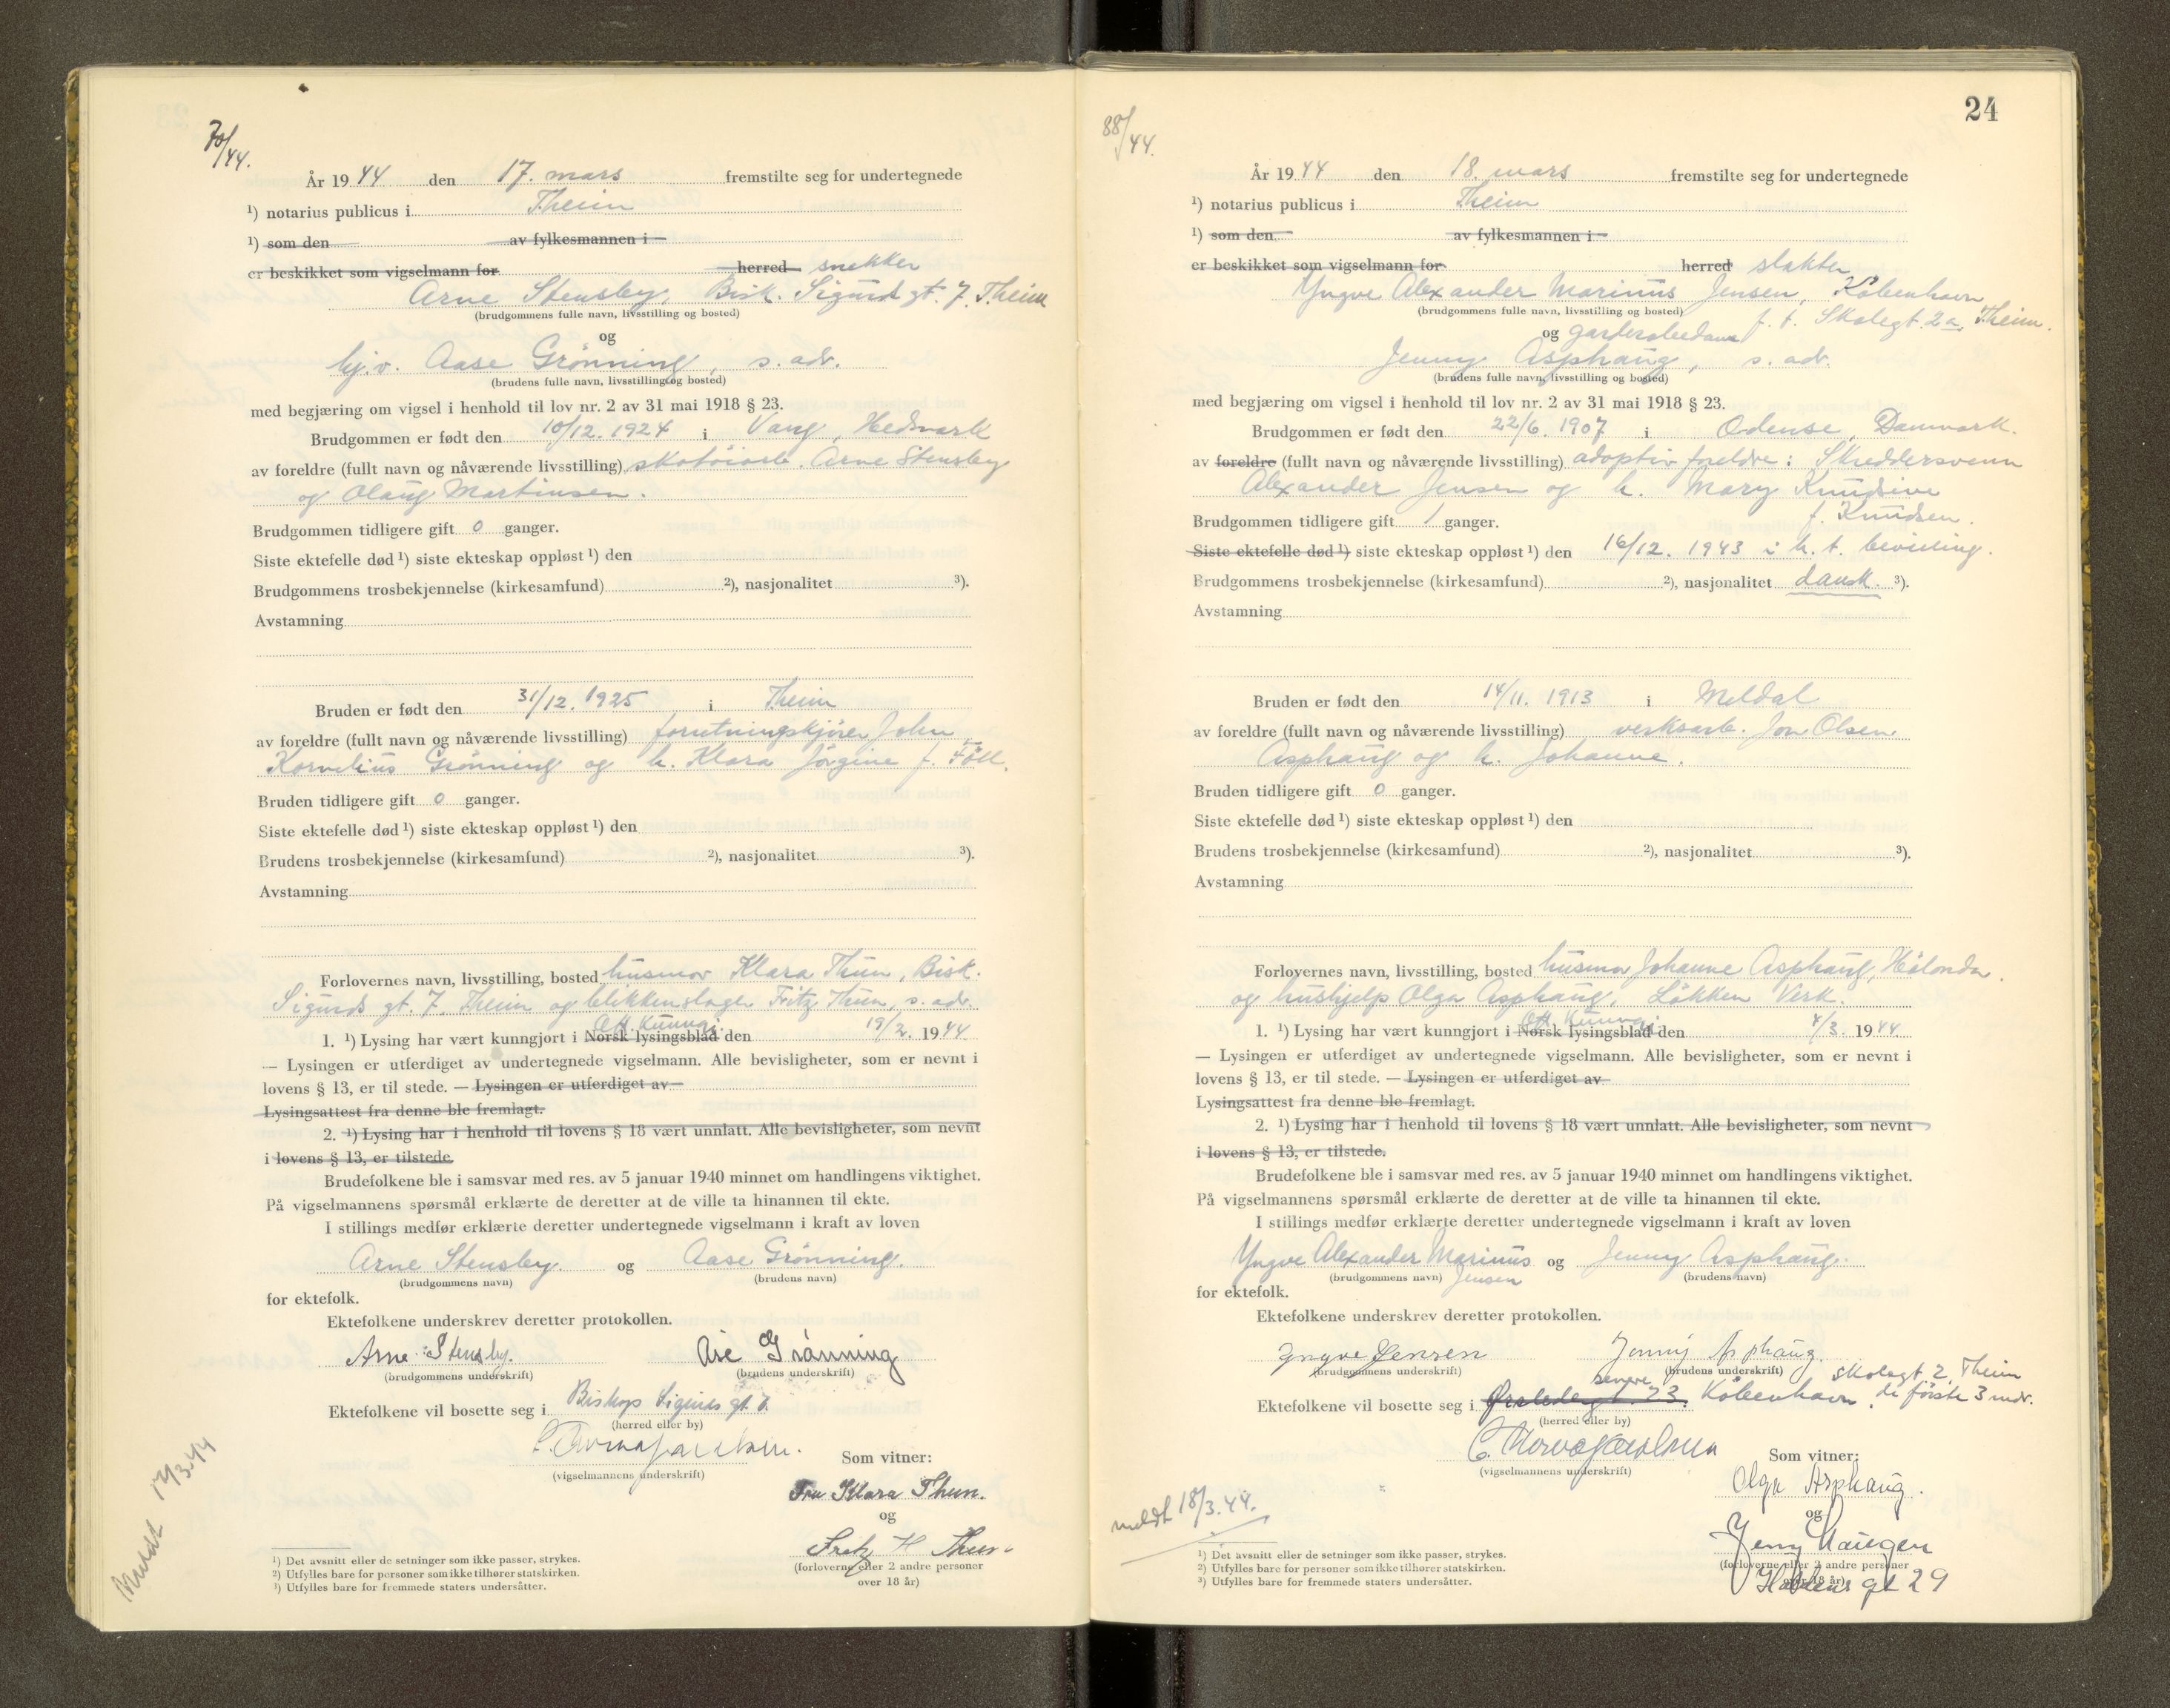 70/44.
År 1944 den 17. mars fremstilte seg for undertegnede
¹) notarius publicus i Theim
¹) som den av fylkesmannen i
er beskikket som vigselmann for herred snekker
Arne Stensby, Bisk. Sigurds gt. 7. Theim
(brudgommens fulle navn, livsstilling og bosted)
og
hj.v. Aase Grønning, s. adr.
(brudens fulle navn, livsstilling og bosted)
med begjæring om vigsel i henhold til lov nr. 2 av 31 mai 1918 § 23.
Brudgommen er født den 10/12. 1924 i Vang, Hedmark
av foreldre (fullt navn og nåværende livsstilling) skotöiarb. Arne Stensby
og Olaug Martinsen.
Brudgommen tidligere gift 0 ganger.
Siste ektefelle død ¹) siste ekteskap oppløst ¹) den
Brudgommens trosbekjennelse (kirkesamfund) ²), nasjonalitet ³).
Avstamning
Bruden er født den 31/12. 1925 i Theim
av foreldre (fullt navn og nåværende livsstilling) forretningskjører John
Kornelius Grønning og h. Klara Jörgine f. Föll.
Bruden tidligere gift 0 ganger.
Siste ektefelle død ¹) siste ekteskap oppløst ¹) den
Brudens trosbekjennelse (kirkesamfund) ²), nasjonalitet ³).
Avstamning
Forlovernes navn, livsstilling, bosted husmor Klara Thun, Bisk.
Sigurds gt. 7. Theim og blikkenslager Fritz Thun, s. adr.
Off. kunngj.
1. ¹) Lysing har vært kunngjort i Norsk lysingsblad den 19/2. 1944.
— Lysingen er utferdiget av undertegnede vigselmann. Alle bevisligheter, som er nevnt i
lovens § 13, er til stede. — Lysingen er utferdiget av
Lysingsattest fra denne ble fremlagt.
2. ¹) Lysing har i henhold til lovens § 18 vært unnlatt. Alle bevisligheter, som nevnt
i lovens § 13, er tilstede.
Brudefolkene ble i samsvar med res. av 5 januar 1940 minnet om handlingens viktighet.
På vigselmannens spørsmål erklærte de deretter at de ville ta hinannen til ekte.
I stillings medfør erklærte deretter undertegnede vigselmann i kraft av loven
Arne Stensby. og Aase Grønning.
(brudgommens navn) (brudens navn)
for ektefolk.
Ektefolkene underskrev deretter protokollen.
Arne Stensby. Åse Grånning
(brudgommens underskrift) (brudens underskrift)
Ektefolkene vil bosette seg i Biskops Sigurds gt. 7
(herred eller by)
(vigselmannens underskrift)
Som vitner:
Fru Klara Thun.
og
Fritz H Thun
(forloverne eller 2 andre personer
over 18 år)
Meldt 17/3.44
¹) Det avsnitt eller de setninger som ikke passer, strykes.
²) Utfylles bare for personer som ikke tilhører statskirken.
³) Utfylles bare for fremmede staters undersåtter.
24
88/44.
År 1944 den 18. mars fremstilte seg for undertegnede
¹) notarius publicus i Theim
¹) som den av fylkesmannen i
er beskikket som vigselmann for herred slakter
Yngve Alexander Marinus Jensen, København
(brudgommens fulle navn, livsstilling og bosted) f. t. Skolegt. 2a, Theim.
og garderobedame
Jenny Asphaug, s. adr.
(brudens fulle navn, livsstilling og bosted)
med begjæring om vigsel i henhold til lov nr. 2 av 31 mai 1918 § 23.
Brudgommen er født den 22/6. 1907 i Odense, Danmark.
av foreldre (fullt navn og nåværende livsstilling) adoptiv foreldre: Skreddersvenn
Alexander Jensen og h. Mary Knudsine
f. Knudsen.
Brudgommen tidligere gift 1 ganger.
Siste ektefelle død ¹) siste ekteskap oppløst ¹) den 16/12. 1943 i h. t. bevilling.
Brudgommens trosbekjennelse (kirkesamfund) ²), nasjonalitet dansk. ³).
Avstamning
Bruden er født den 14/11. 1913 i Meldal
av foreldre (fullt navn og nåværende livsstilling) verksarb. Jon Olsen
Asphaug og h. Johanne.
Bruden tidligere gift 0 ganger.
Siste ektefelle død ¹) siste ekteskap oppløst ¹) den
Brudens trosbekjennelse (kirkesamfund) ²), nasjonalitet ³).
Avstamning
Forlovernes navn, livsstilling, bosted husmor Johanne Asphaug, Hölonda.
og hushjelp Olga Asphaug, Lökken Verk.
Off. Kunngj.
1. ¹) Lysing har vært kunngjort i Norsk lysingsblad den 4/3. 1944.
— Lysingen er utferdiget av undertegnede vigselmann. Alle bevisligheter, som er nevnt i
lovens § 13, er til stede. — Lysingen er utferdiget av
Lysingsattest fra denne ble fremlagt.
2. ¹) Lysing har i henhold til lovens § 18 vært unnlatt. Alle bevisligheter, som nevnt
i lovens § 13, er tilstede.
Brudefolkene ble i samsvar med res. av 5 januar 1940 minnet om handlingens viktighet.
På vigselmannens spørsmål erklærte de deretter at de ville ta hinannen til ekte.
I stillings medfør erklærte deretter undertegnede vigselmann i kraft av loven
Yngve Alexander Marinus og Jenny Asphaug.
(brudgommens navn) Jensen (brudens navn)
for ektefolk.
Ektefolkene underskrev deretter protokollen.
Yngve Jensen Jenny Asphaug.
(brudgommens underskrift) (brudens underskrift)
senere skolegt 2, Theim
Ektefolkene vil bosette seg i 23. København, de förste 3 mdr.
(herred eller by)
(vigselmannens underskrift)
Som vitner:
Olga Asphaug.
og
Jenny Haugen
(forloverne eller 2 andre personer
over 18 år)
gt 29
meldt 18/3.44.
¹) Det avsnitt eller de setninger som ikke passer, strykes.
²) Utfylles bare for personer som ikke tilhører statskirken.
³) Utfylles bare for fremmede staters undersåtter.